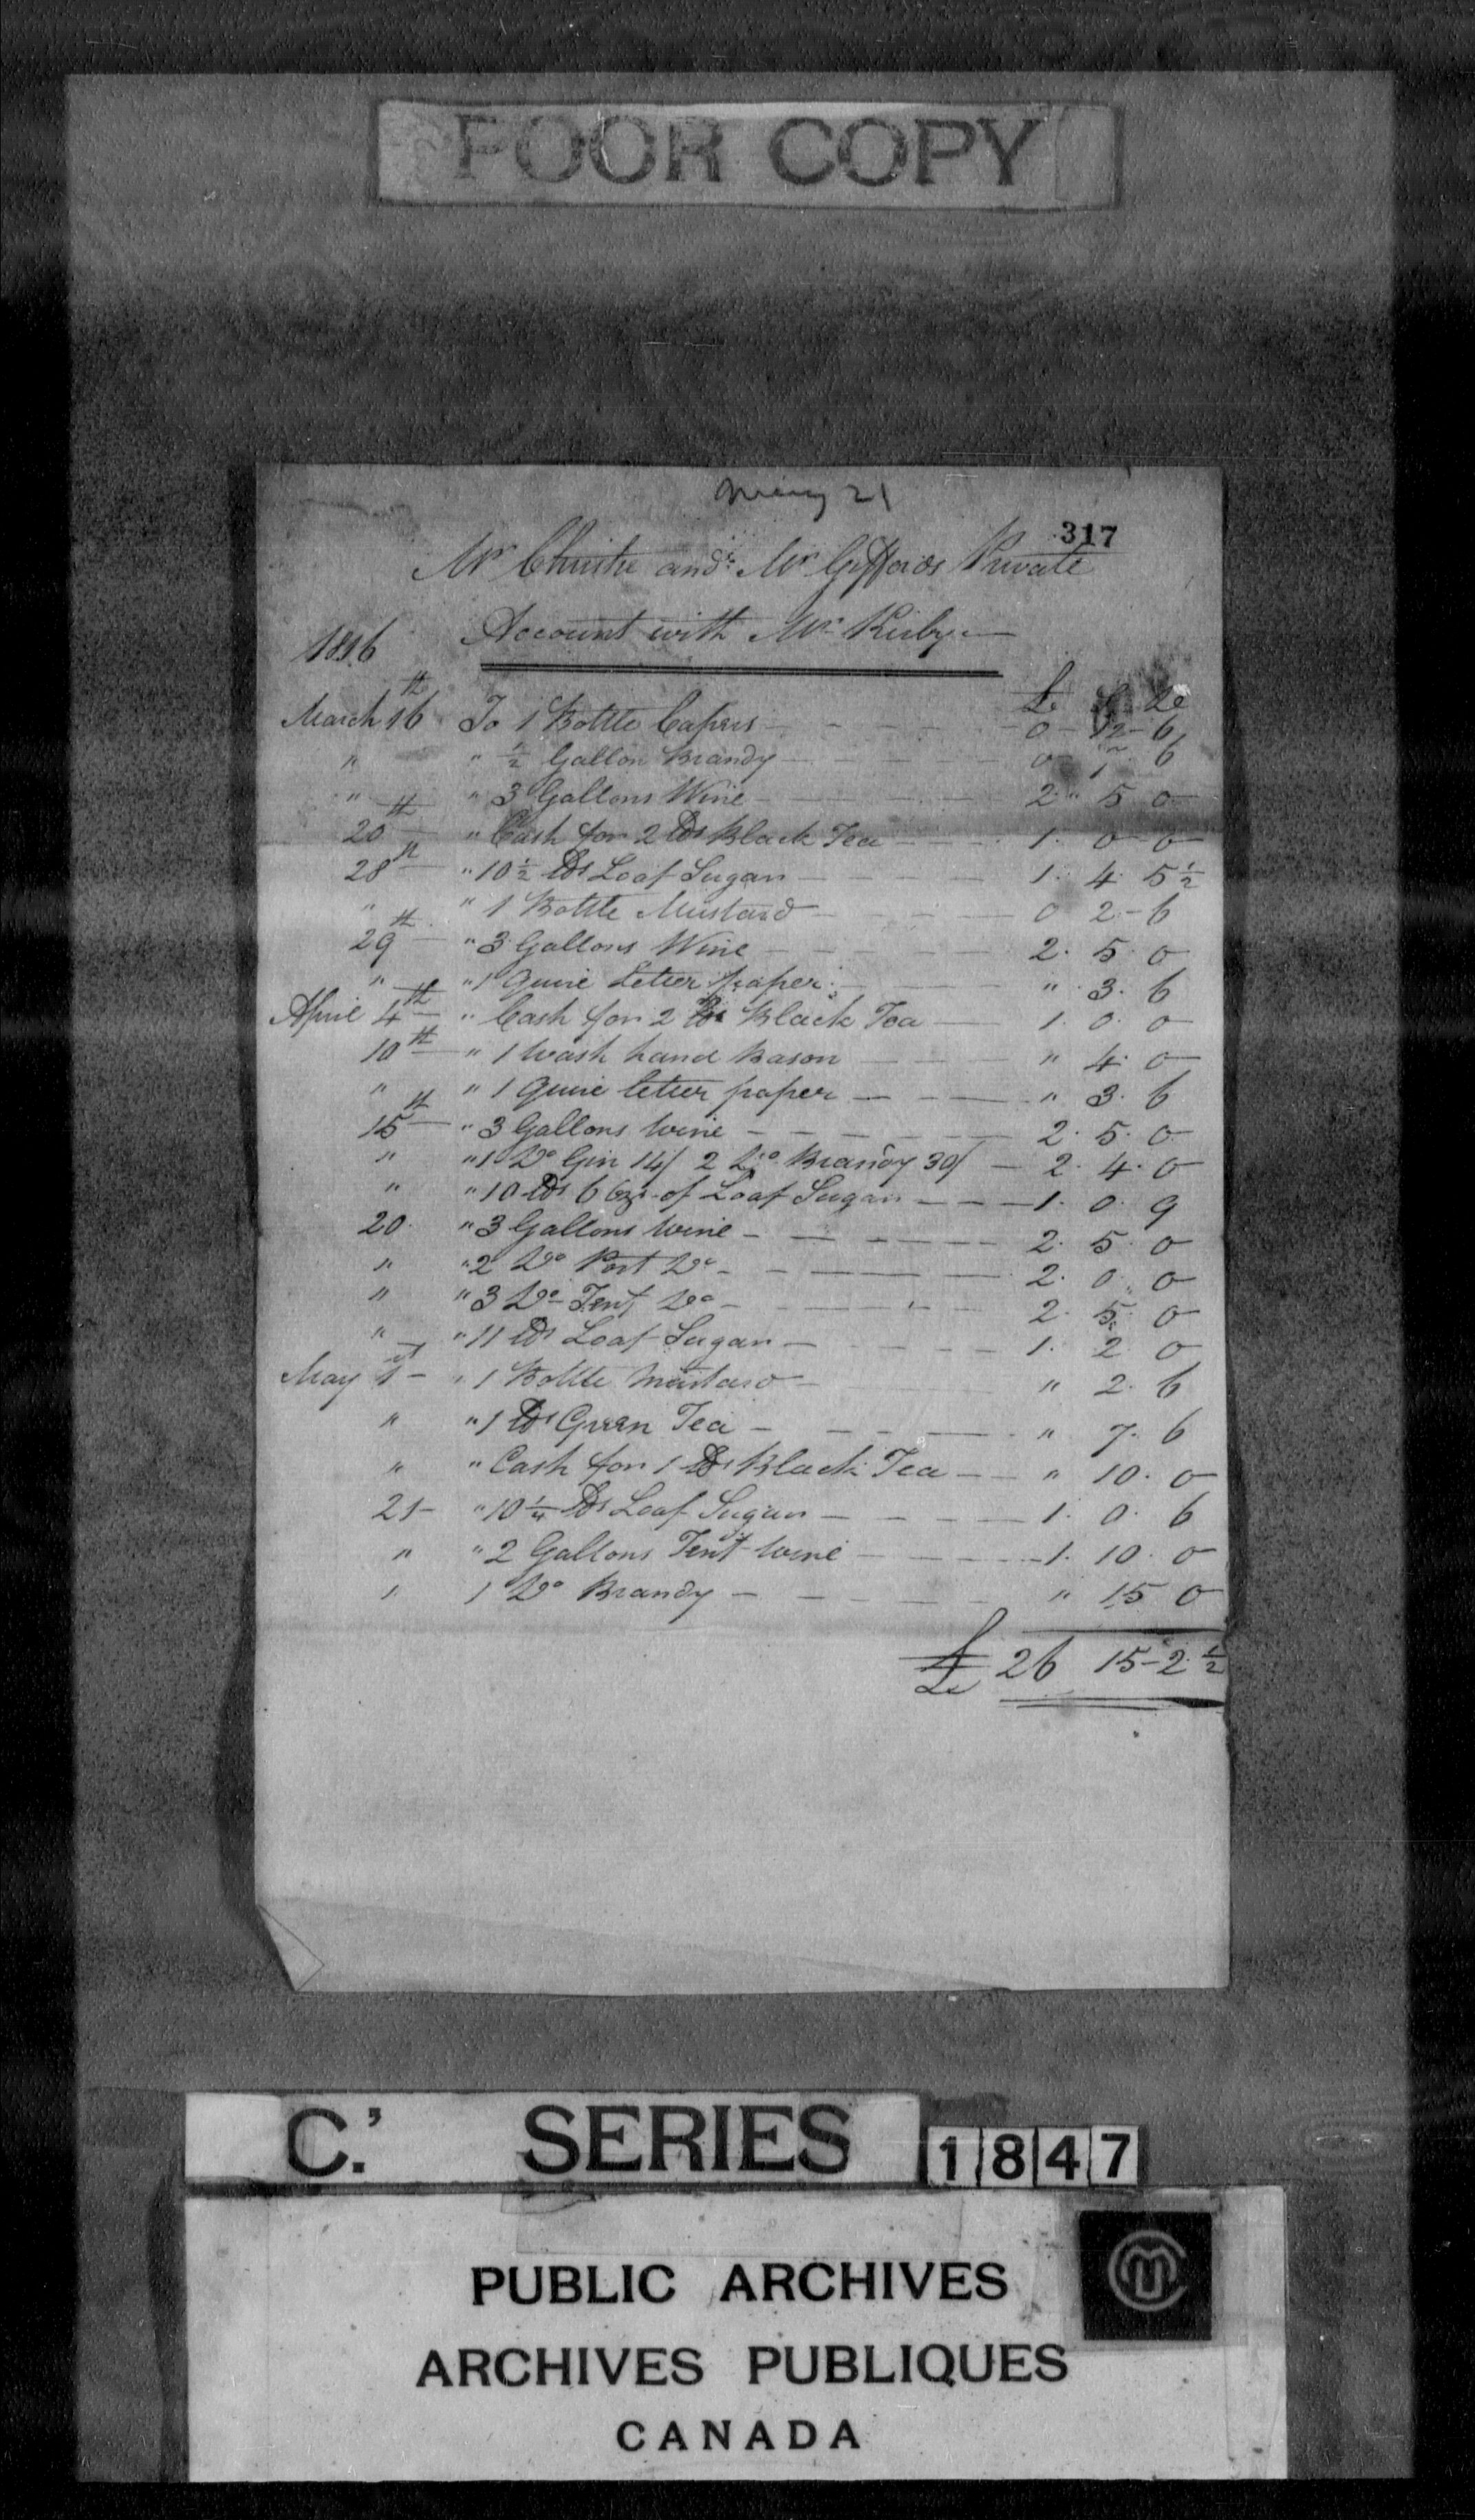 POOR COPY
May 21
317
Mr Christie and Mr Giffords Private
Account with Mr Kirby
1816
£ S D
March 16th To 1 Bottle Capers - 0 - 12 - 6
" " ½ Gallon Brandy - 0 7 6
" " 3 Gallons Wine - 2 " 5 0
20th " Cash for 2 lbs Black Tea - 1 . 0 - 0
28th " 10 ½ lbs Loaf Sugar - 1 . 4 . 5 ½
" " 1 Bottle Mustard - 0 2 - 6
29th " 3 Gallons Wine - 2 . 5 . 0
" " 1 Quire Letter paper - " . 3 . 6
April 4th " Cash for 2 lbs Black Tea - 1 . 0 . 0
10th " 1 wash hand Bason - " 4 . 0
" " 1 Quire letter paper - " 3 . 6
15th " 3 Gallons wine - 2 . 5 . 0
" " 1 Do Gin 14/ 2 Do Brandy 30/ - 2 . 4 . 0
" " 10 lbs 6 ozs of Loaf Sugar - 1 . 0 . 9
20 . " 3 Gallons wine - 2 . 5 . 0
" " 2 Do Port Do - 2 . 0 . 0
" " 3 Do Tent Do - 2 . 5 . 0
" " 11 lbs Loaf Sugar - 1 . 2 0
May 1st - " 1 Bottle Mustard - " 2 . 6
" " 1 lbs Green Tea - " 7 . 6
" " Cash for 1 lbs Black Tea - " 10 . 0
21 - " 10 ¼ lbs Loaf Sugar - 1 . 0 . 6
" " 2 Gallons Tent Wine - 1 . 10 . 0
" 1 Do Brandy - " 15 0
£ 26 15 - 2 ½
C.' SERIES 1847
PUBLIC ARCHIVES
ARCHIVES PUBLIQUES
CANADA